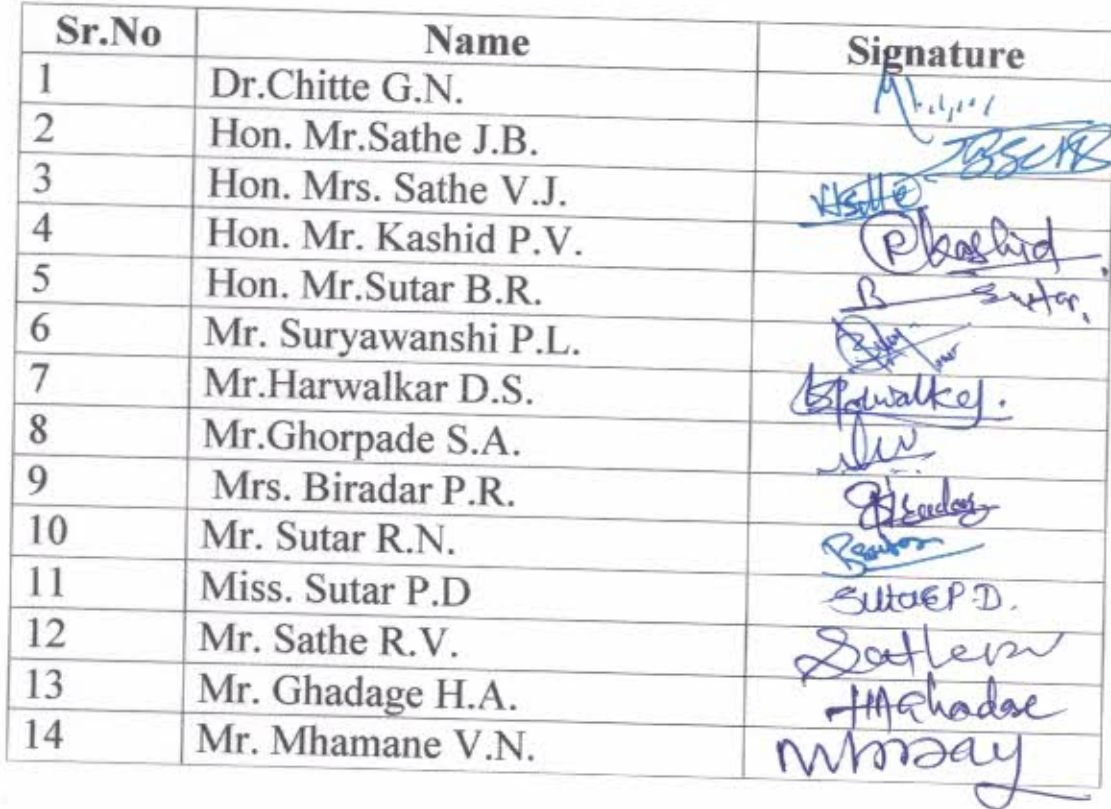 Sr.No Name Signature
1 Dr.Chitte G.N.
2 Hon. Mr.Sathe J.B.
3 Hon. Mrs. Sathe V.J.
4 Hon. Mr. Kashid P.V. Pkashid.
5 Hon. Mr.Sutar B.R. B Sutar.
6 Mr. Suryawanshi P.L.
7 Mr.Harwalkar D.S.
8 Mr.Ghorpade S.A.
9 Mrs. Biradar P.R.
10 Mr. Sutar R.N.
11 Miss. Sutar P.D Sutar P.D.
12 Mr. Sathe R.V.
13 Mr. Ghadage H.A. HAGhadage
14 Mr. Mhamane V.N.